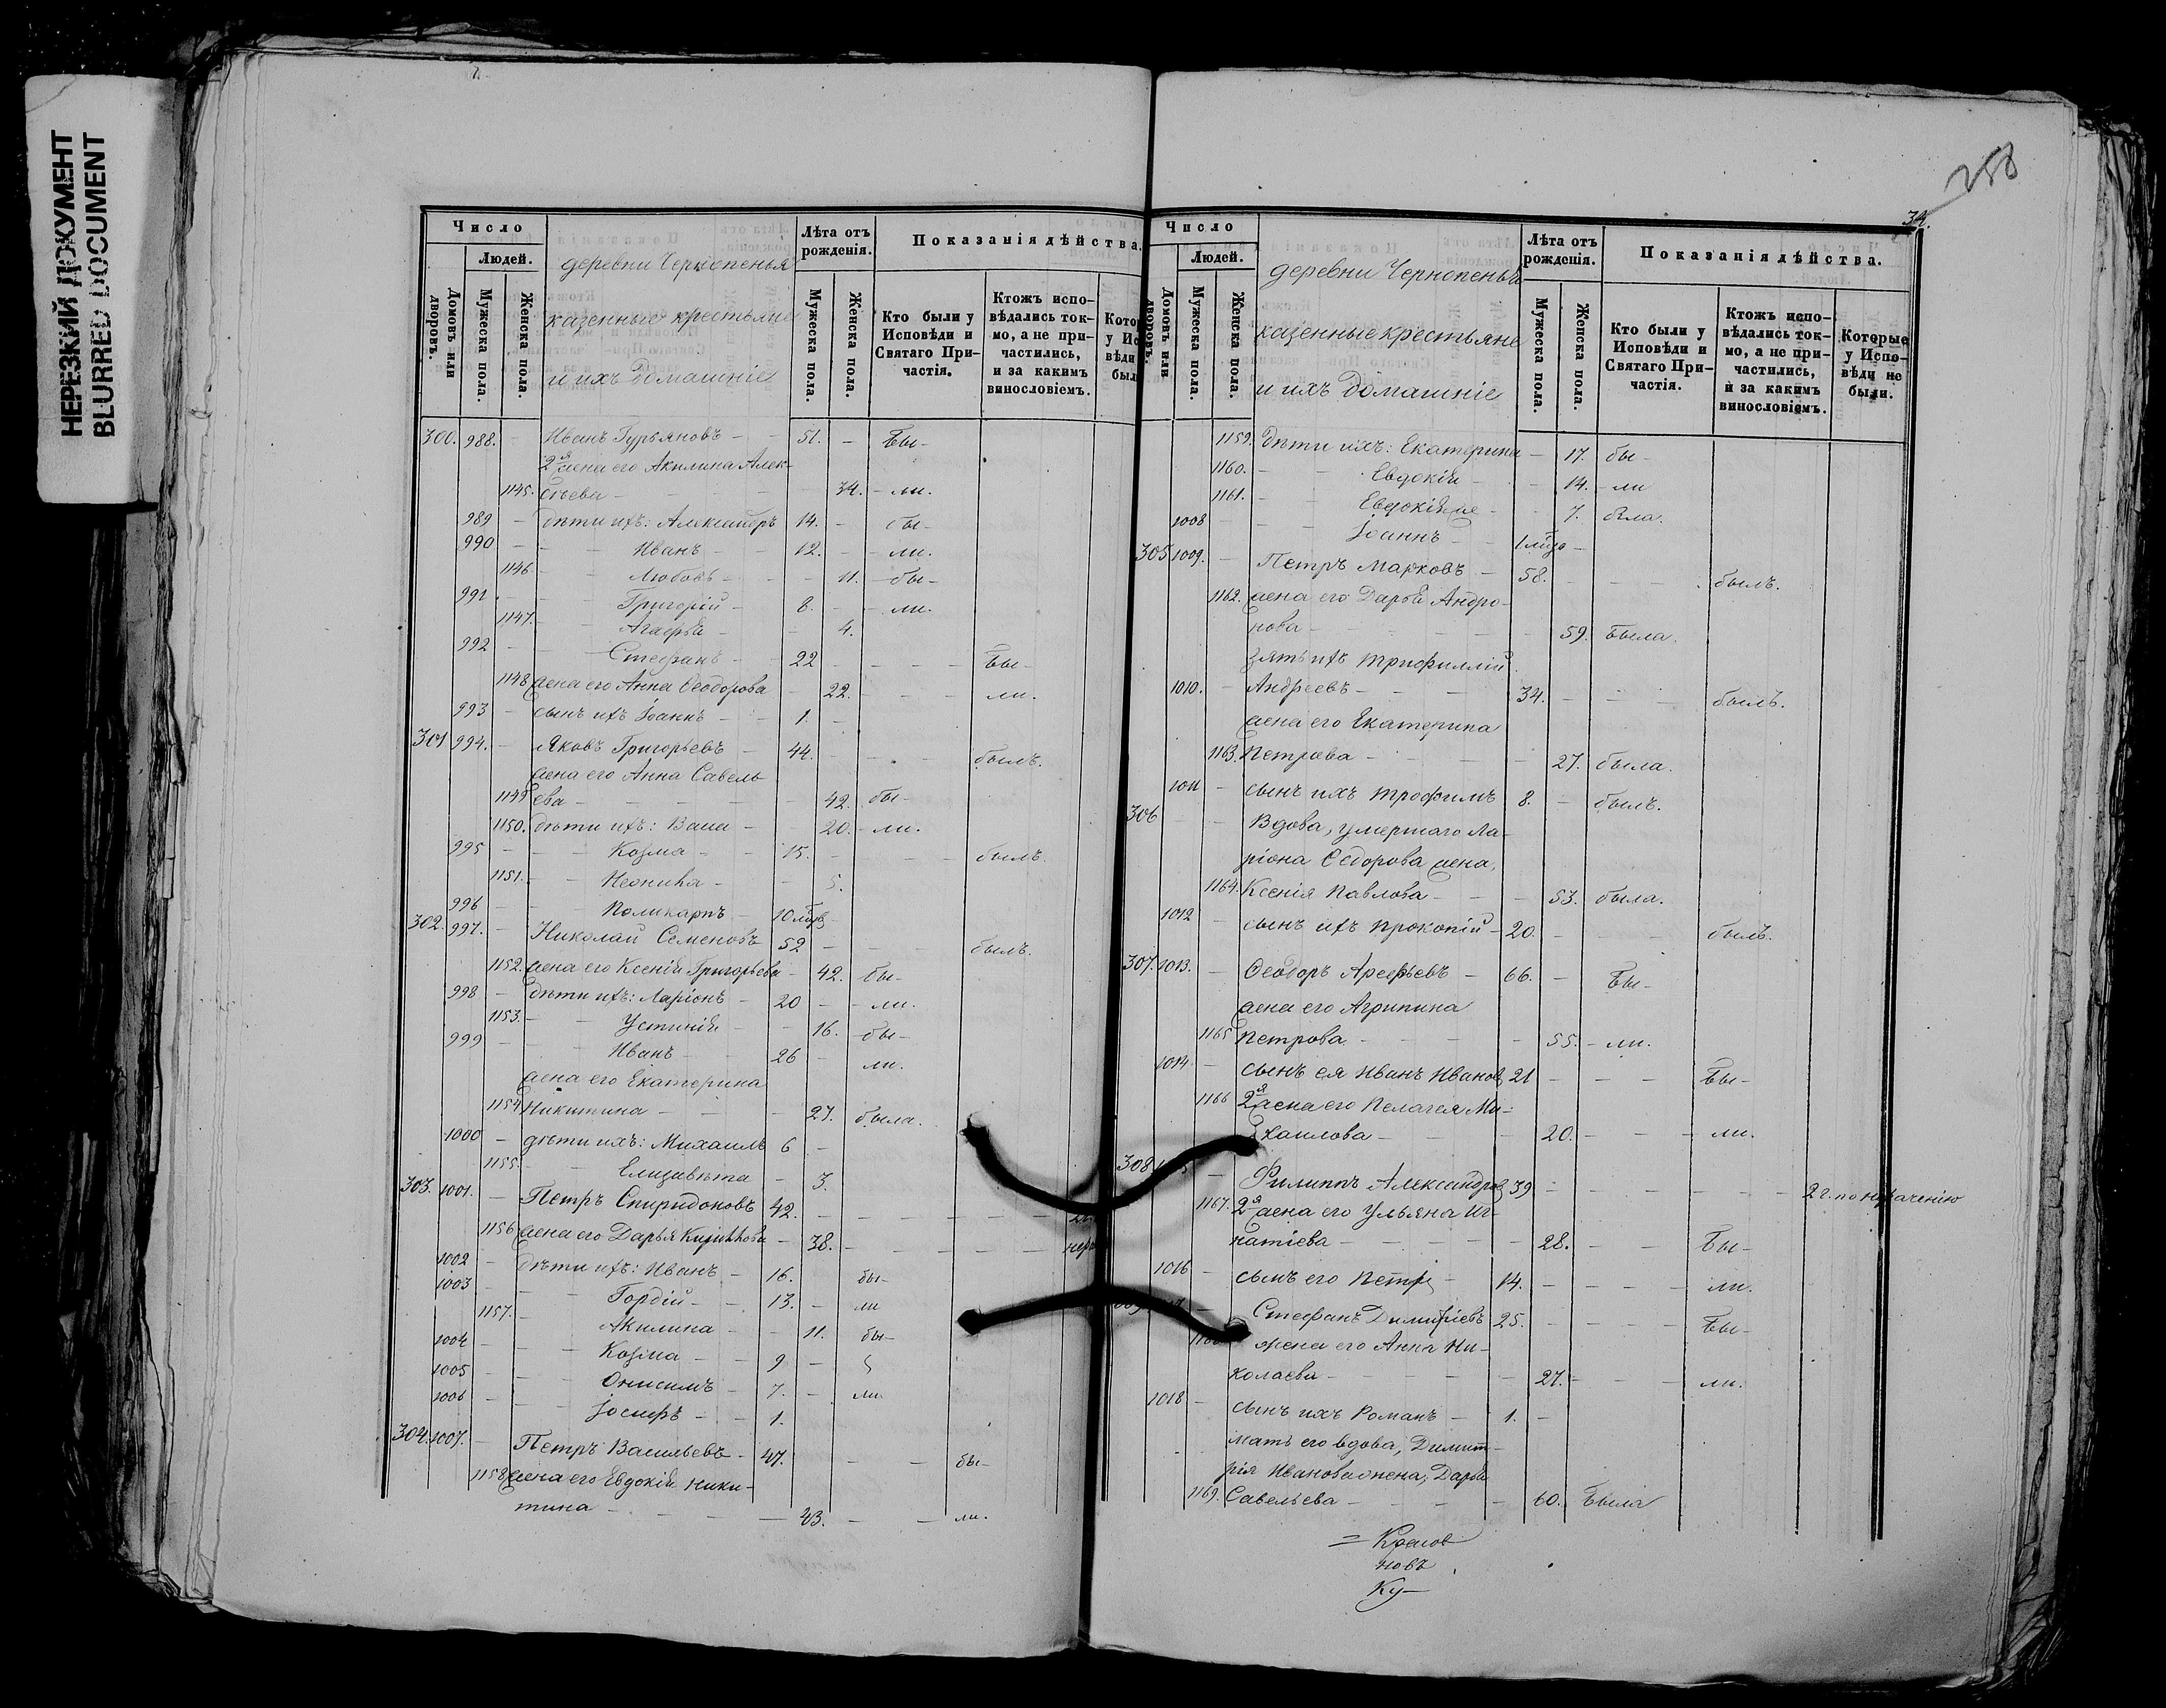 НЕРЕЗКИЙ ДОКУМЕНТ
BLURRED DOCUMENT
258
34.
Число
Людей.
Домовъ или дворовъ.
Мужеска пола.
Женска пола.
деревни Чернопенья
казенные крестьяне
и ихъ домашніе
Лѣта отъ рожденія.
Мужеска пола.
Женска пола.
Показанія дѣйства.
Кто были у Исповѣди и Святаго Причастія.
Ктожъ исповѣдались токмо, а не причастились, и за какимъ винословіемъ.
300. 988. - Иванъ Гурьяновъ - 51. - Бы-
2я жена его Акилина Алек-
1145. сѣева - 34. - ли.
989 - дѣти ихъ: Александръ 14. - бы-
990 - Иванъ - 12. - ли.
1146 - Любовь - 11. - бы-
991 - Григорій - 8. - ли.
1147. - Агафья - 4.
992 - Стефанъ - 22 - Бы-
1148 жена его Анна Ѳеодорова - 22. - ли.
993 - сынъ ихъ Іоаннъ - 1. -
301 994. - Яковъ Григорьевъ - 44. - былъ.
жена его Анна Савель-
1149 ева - 42. бы-
1150. дѣти ихъ: Васса - 20. - ли.
995 - Козма - 15. - былъ.
1151. - Леонила - 5.
996 - Поликарпъ - 10 мѣс
302. 997. - Николай Семеновъ 52 - былъ.
1152. жена его Ксенія Григорьева - 42. бы-
998 - дѣти ихъ: Ларіонъ - 20 - ли.
1153. - Устинія - 16. бы-
999 - Иванъ - 26 - ли.
жена его Екатерина
1154 Никитина - 27. была.
1000 - дѣти ихъ: Михаилъ 6 -
1155. - Елизавѣта - 3.
303. 1001. - Петръ Спиридоновъ 42. -
1156 жена его Дарья - 38. -
1002 - дѣти ихъ: Иванъ - 16. бы-
1003 - Гордій - 13. - ли
1157. - Акилина - 11. бы-
1004 - Козма - 9 -
1005 - Онисимъ - 7. - ли
1006 - Іосифъ - 1.
304. 1007. - Петръ Васильевъ - 47. - бы-
1158 жена его Евдокія Ники-
тина - 43. - ли.
Число
Людей.
Домовъ или дворовъ.
Мужеска пола.
Женска пола.
деревни Чернопенья
казенные крестьяне
и ихъ домашніе
Лѣта отъ рожденія.
Мужеска пола.
Женска пола.
Показанія дѣйства.
Кто были у Исповѣди и Святаго Причастія.
Ктожъ исповѣдались токмо, а не причастились, и за какимъ винословіемъ.
Которые у Исповѣди не были.
1159. дѣти ихъ: Екатерина - 17. бы-
1160. - Евдокія - 14. - ли
1161. - Евдокія же - 7. была.
1008 - Іоаннъ - 1 мѣс -
305 1009. - Петръ Марковъ - 58. - былъ.
1162. жена его Дарья Андро-
нова - 59. Была.
зять ихъ Трифиллій
1010. - Андреевъ - 34. - былъ.
жена его Екатерина
1163. Петрова - 27. была.
1011 - сынъ ихъ Трофимъ 8. - былъ.
306 - Вдова, умершаго Ла-
ріона Ѳедорова жена,
1164. Ксенія Павлова - 53. была.
1012 - сынъ ихъ Прокопій - 20. - былъ.
307. 1013. - Ѳеодоръ Арефьевъ - 66. - Бы-
жена его Агрипина
1165 Петрова - 55. - ли.
1014 - сынъ ея Иванъ Иванов 21 - Бы-
1166 2я жена его Пелагея Ми-
хаилова - 20. - ли.
308 - Филиппъ Александров 39 - 2 г. по нераченію
1167. 2я жена его Ульяна Иг-
натіева - 28. - Бы-
1016 - сынъ его Петръ - 14. - ли.
Стефанъ Димитріевъ 25. - Бы-
жена его Анна Ни-
колаева - 27. - ли.
1018 - сынъ ихъ Романъ - 1. -
мать его вдова, Димит-
рія Иванова жена, Дарья
1169. Савельева - 60. Была
новъ
Ку-